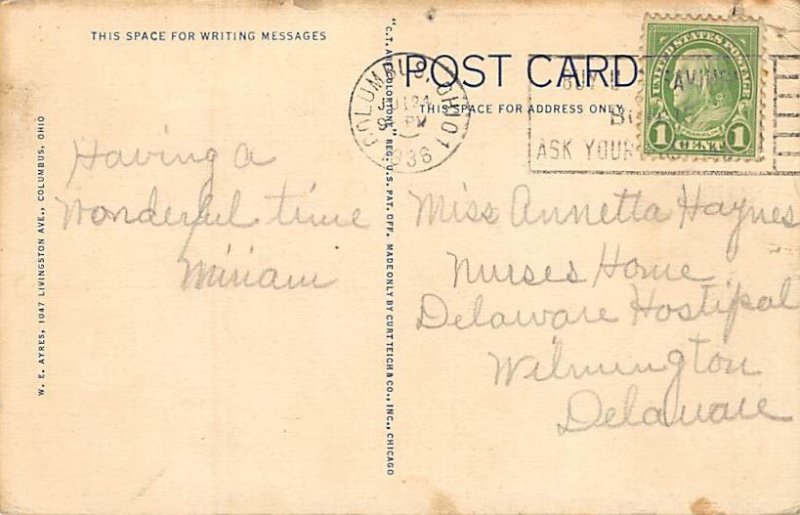 THIS SPACE FOR WRITING MESSAGES
Having a
Wonderful time
Miriam
W. E. AYRES, 1047 LIVINGSTON AVE., COLUMBUS, OHIO
"C.T. ART-COLORTONE" REG. U.S. PAT. OFF. MADE ONLY BY CURT TEICH & CO., INC., CHICAGO
POST CARD
THIS SPACE FOR ADDRESS ONLY
COLUMBUS, OHIO 1
PM
1936
BUY
SAVINGS
ASK YOUR
UNITED STATES POSTAGE
FRANKLIN
1 CENT 1
Miss Annetta Haynes
Nurses Home
Delaware Hostipal
Wilmington
Delaware